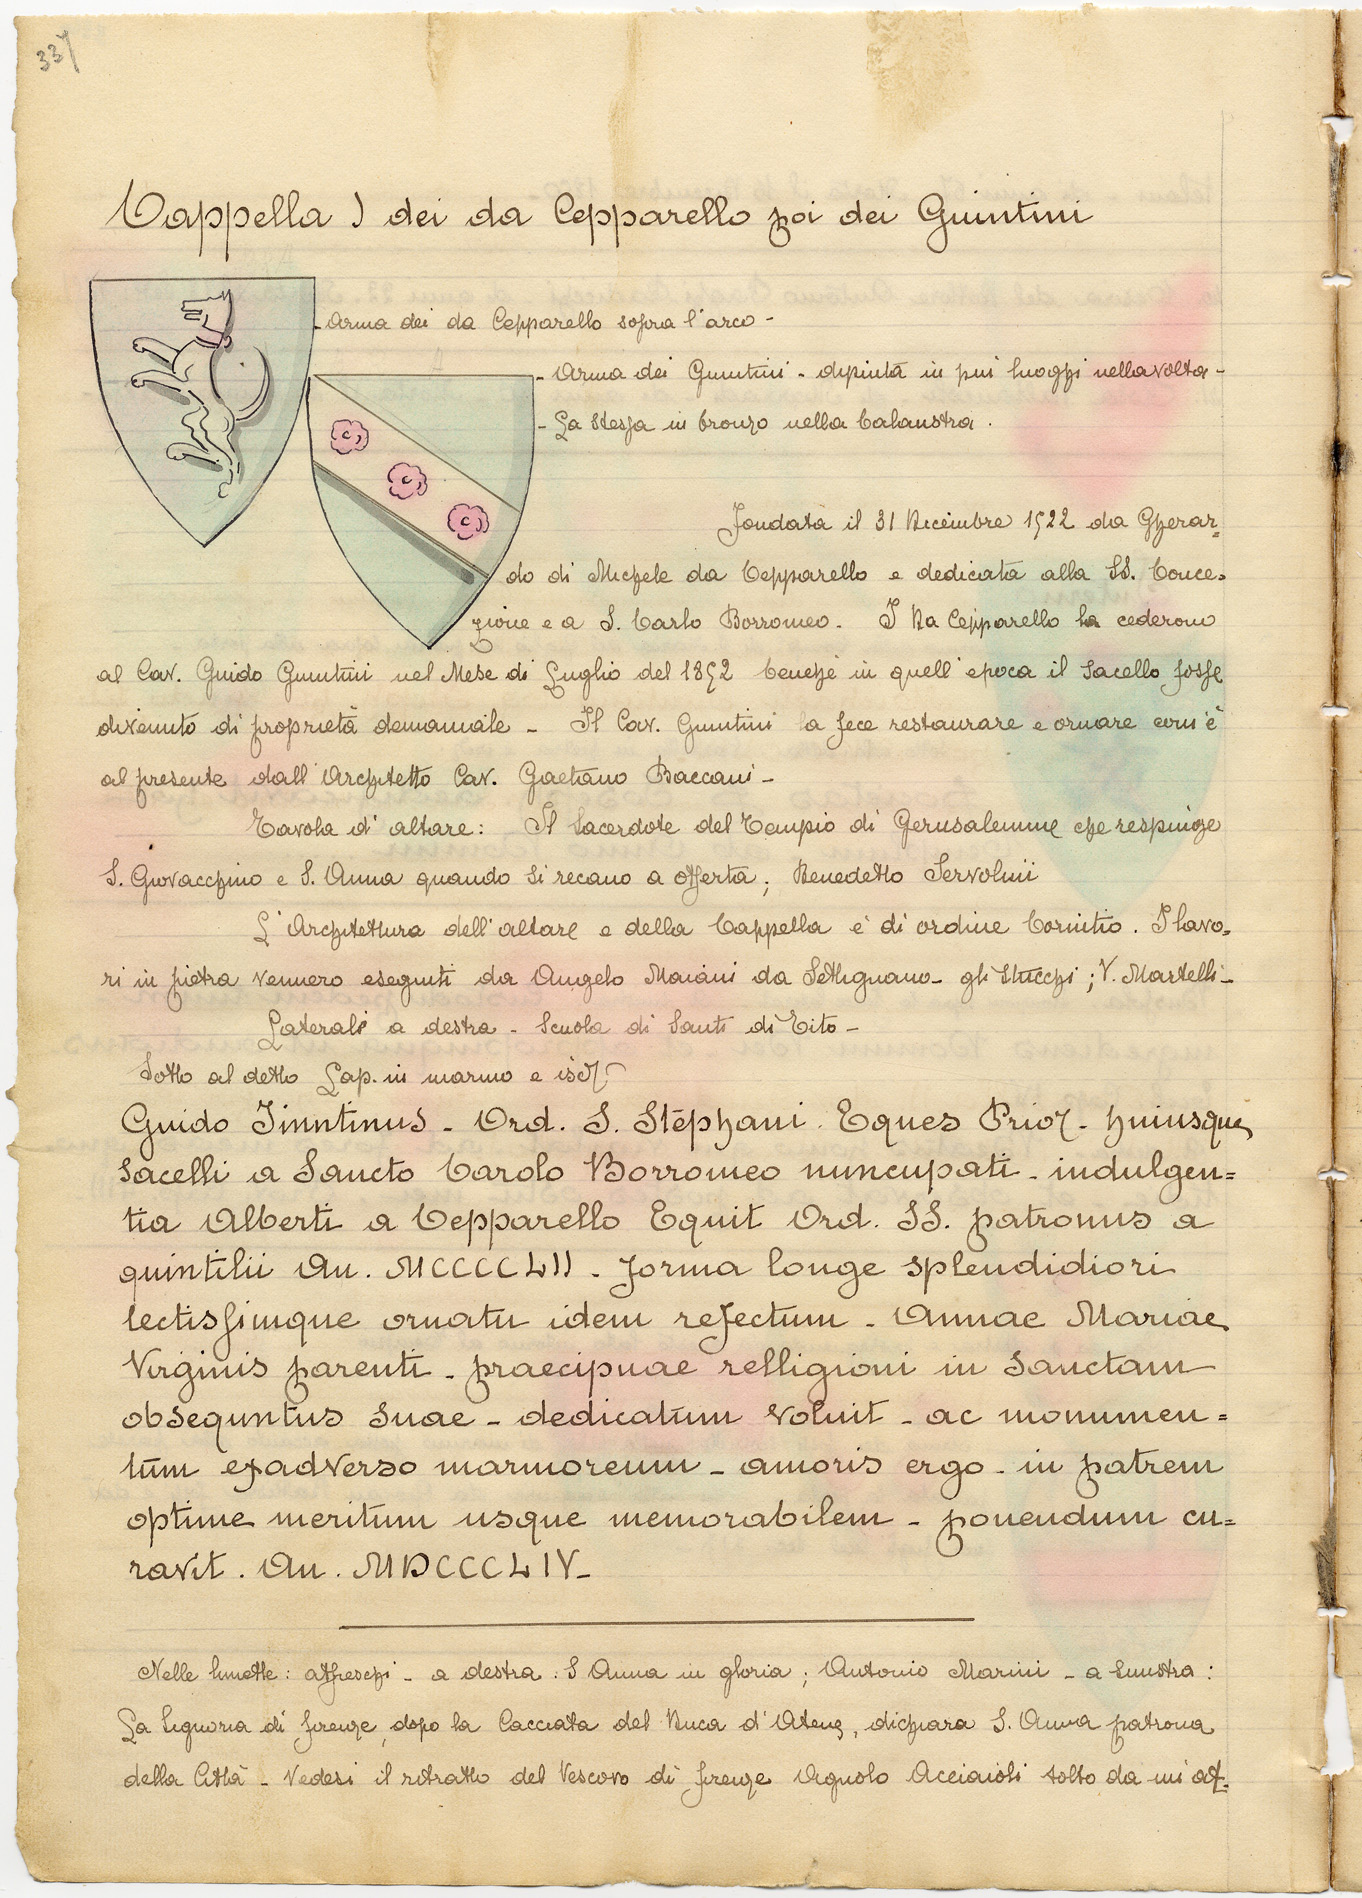 337
Cappella I dei da Cepparello poi dei Guintini
- Arma dei da Cepparello sopra l'arco -
- Arma dei Guintini - dipinta in più luoghi nella volta -
- La stessa in bronzo nella balaustra .
Fondata il 31 Dicembre 1522 da Gherar=
do di Michele da Cepparello e dedicata alla SS. Conce=
zione e a S. Carlo Borromeo. I Da Cepparello la cederono
al Cav. Guido Guintini nel Mese di Luglio del 1852 benchè in quell'epoca il Sacello fosse
divenuto di proprietà demaniale - Il Cav. Guintini la fece restaurare e ornare com'è
al presente dall'Architetto Cav. Gaetano Baccani -
Tavola d'altare: Il Sacerdote del Tempio di Gerusalemme che respinge
S. Giovacchino e S. Anna quando si recano a offerta; Benedetto Servolini
L'Architettura dell'altare e della Cappella è di ordine Corintio. I lavo=
ri in pietra vennero eseguiti da Angelo Maiani da Settignano - gli Stucchi; V. Martelli -
Laterali a destra - Scuola di Santi di Tito -
Sotto al detto Lap. in marmo e iscr.
Guido Jinntinus - Ord. S. Stephani Eques Prior - huiusque
Sacelli a Sancto Carolo Borromeo nuncupati - indulgen=
tia Alberti a Cepparello Equit Ord. SS. patronus a
quintilii An. MCCCCLII - forma longe splendidiori
lectissimque ornatu idem refectum - Annae Mariae
Virginis parenti - praecipuae relligioni in Sanctam
obsequntus suae - dedicatum voluit - ac monumen=
tum exadverso marmoreum - amoris ergo - in patrem
optime meritum usque memorabilem - ponendum cu=
ravit. An. MDCCCLIV -
Nelle lunette: affreschi - a destra: S Anna in gloria; Antonio Marini - a sinistra:
La Signoria di firenze, dopo la Cacciata del Duca d'Atene, dichiara S. Anna patrona
della Città - Vedesi il ritratto del Vescovo di firenze Agnolo Acciaioli tolto da un'af=